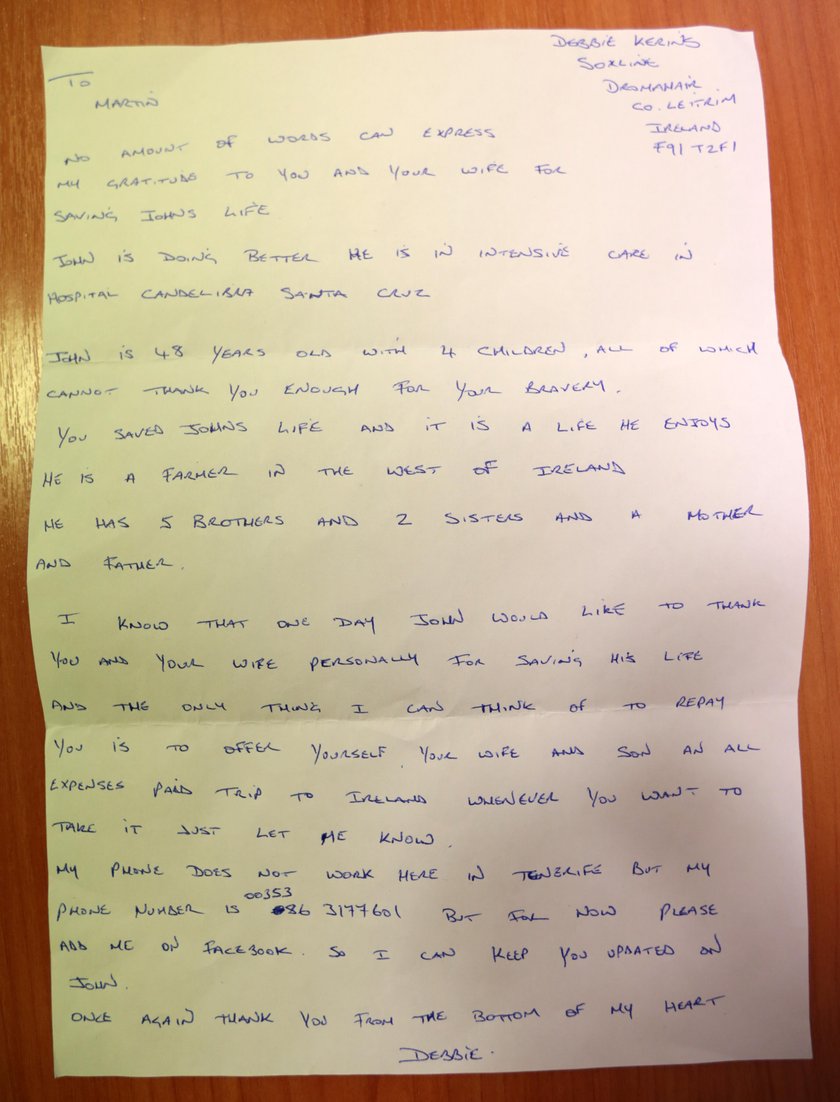 DEBBIE KERINS
SOXLINE
DROMAHAIR
CO. LEITRIM
IRELAND
F91 T2F1
TO
MARTIN
NO AMOUNT OF WORDS CAN EXPRESS
MY GRATITUDE TO YOU AND YOUR WIFE FOR
SAVING JOHNS LIFE
JOHN IS DOING BETTER HE IS IN INTENSIVE CARE IN
HOSPITAL CANDELIBRA SANTA CRUZ
JOHN IS 48 YEARS OLD WITH 4 CHILDREN, ALL OF WHICH
CANNOT THANK YOU ENOUGH FOR YOUR BRAVERY.
YOU SAVED JOHNS LIFE AND IT IS A LIFE HE ENJOYS
HE IS A FARMER IN THE WEST OF IRELAND
HE HAS 5 BROTHERS AND 2 SISTERS AND A MOTHER
AND FATHER.
I KNOW THAT ONE DAY JOHN WOULD LIKE TO THANK
YOU AND YOUR WIFE PERSONALLY FOR SAVING HIS LIFE
AND THE ONLY THING I CAN THINK OF TO REPAY
YOU IS TO OFFER YOURSELF, YOUR WIFE AND SON AN ALL
EXPENSES PAID TRIP TO IRELAND WHENEVER YOU WANT TO
TAKE IT JUST LET ME KNOW.
MY PHONE DOES NOT WORK HERE IN TENERIFE BUT MY
PHONE NUMBER IS 00353 86 3177601 BUT FOR NOW PLEASE
ADD ME ON FACEBOOK. SO I CAN KEEP YOU UPDATED ON
JOHN.
ONCE AGAIN THANK YOU FROM THE BOTTOM OF MY HEART
DEBBIE.